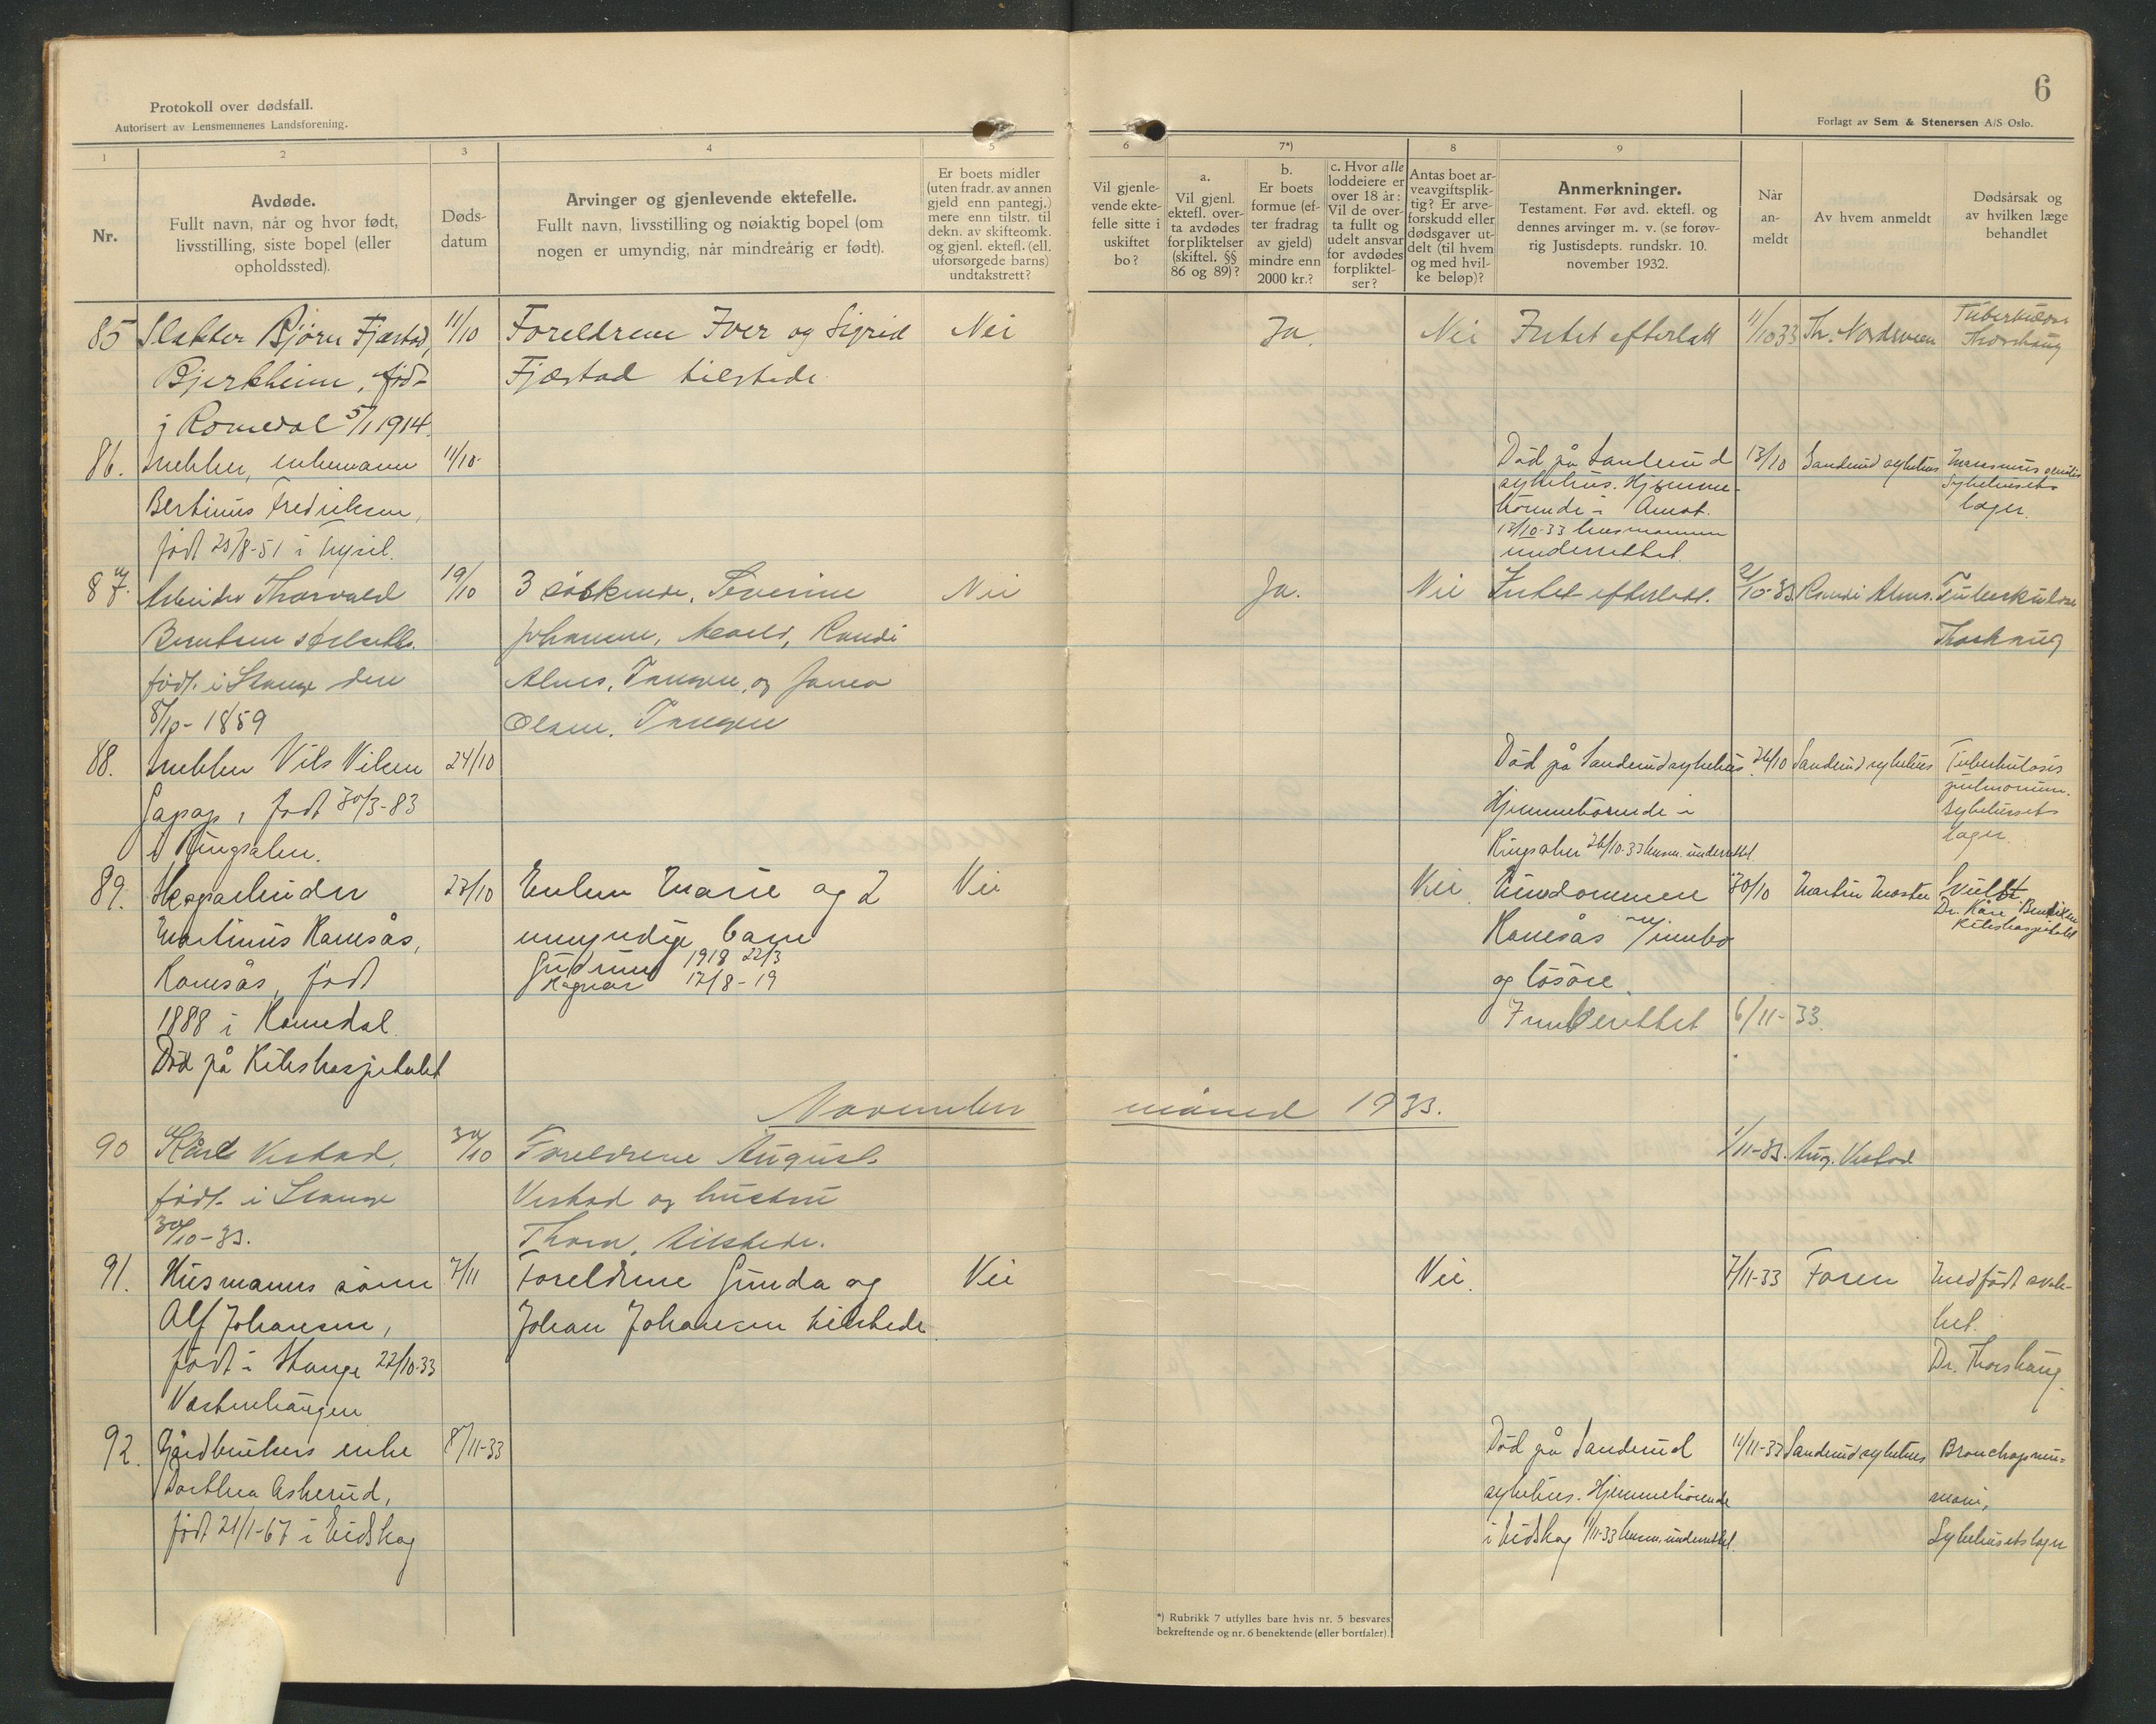 Protokoll over dødsfall.
Autorisert av Lensmennenes Landsforening.
6
Forlagt av Sem & Stenersen A/S Oslo.
1
2
3
4
5
6
7*)
8
9
Nr.
Avdøde.
Fullt navn, når og hvor født,
livsstilling, siste bopel (eller
opholdssted).
Døds-
datum
Arvinger og gjenlevende ektefelle.
Fullt navn, livsstilling og nøiaktig bopel (om
nogen er umyndig, når mindreårig er født).
Er boets midler
(uten fradr. av annen
gjeld enn pantegj.)
mere enn tilstr. til
dekn. av skifteomk.
og gjenl. ektefl. (ell.
uforsørgede barns)
undtakstrett?
Vil gjenle-
vende ekte-
felle sitte i
uskiftet
bo?
a.
Vil gjenl.
ektefl. over-
ta avdødes
forpliktelser
(skiftel. §§
86 og 89)?
b.
Er boets
formue (ef-
ter fradrag
av gjeld)
mindre enn
2000 kr.?
c. Hvor alle
loddeiere er
over 18 år:
Vil de over-
ta fullt og
udelt ansvar
for avdødes
forpliktel-
ser?
Antas boet ar-
veavgiftsplik-
tig? Er arve-
forskudd eller
dødsgaver ut-
delt (til hvem
og med hvil-
ke beløp)?
Anmerkninger.
Testament. Før avd. ektefl. og
dennes arvinger m. v. (se forøv-
rig Justisdepts. rundskr. 10.
november 1932.
Når
an-
meldt
Av hvem anmeldt
Dødsårsak og
av hvilken læge
behandlet
85 Slakter Bjørn Fjæstad, 11/10 Foreldrene Iver og Sigrid Nei Ja. Nei Intet efterlatt 11/10 33 Th. Nordsveen Tuberkulose
Bjerkheim, født Fjæstad tilstede Thorshaug
i Romedal 5/1 1914.
86. enkemann 11/10 Død på Sanderud 13/10 Sanderud sykehus Marasmus senilis
Bertinus Fredriksen, sykehus. Hjemme- Sykehusets
hørende i Åmot. læge.
født 23/8-51 i Trysil. 13/10-33 lensmannen
underrettet.
87. Arbeider Thorvald 19/10 3 søskende, Severine Nei Ja. Nei Intet efterlatt. 21/10-33 Randi Alnes. Tuberkulose
Berntsen Johansen, Randi Thorshaug
født i Stange den Alnes, Tangen, og
8/10-1859 Olsen, Tangen
88. Nils Nilsen 24/10 Død på Sanderud sykehus. 26/10 Sanderud sykehus Tuberkulosis
født 30/3-83 Hjemmehørende i pulmonum.
i Ringsaker. Ringsaker 26/10-33 lensm. underrettet. Sykehusets
læge.
89. Skogarbeider 23/10 Enken Marie og 2 Nei Nei Eiendommen 30/10 Martin Svulst
Martinus Ramsås, umyndige barn Ramsås m/innbo Dr. Kåre
Ramsås, født Gudrun 1918 22/3 og løsøre. Rikshospitalet
1888 i Romedal. Ragnar 17/8-19
Innberettet 6/11-33.
Død på Rikshospitalet
November måned 1933.
90 Kåre Vestad, 30/10 Foreldrene August 1/11-33. Aug. Vestad
født i Stange Vestad og hustru
30/10-33. Thora, tilstede.
91. Husmanns sønn 7/11 Foreldrene Gunda og Nei Nei. 7/11-33 Faren Medfødt svak-
Alf Johansen, Johan Johansen tilstede. het.
født i Stange 22/10-33 Dr. Thorshaug.
92. Gårdbrukers enke 8/11-33 Død på Sanderud 11/11-33 Sanderud sykehus Bronchopneu-
Dorthea Askerud, sykehus. Hjemmehørende moni,
født 21/1-67 i Eidskog i Eidskog 11/11-33 lensm. underrettet. Sykehusets læge
*) Rubrikk 7 utfylles bare hvis nr. 5 besvares
bekreftende og nr. 6 benektende (eller bortfaler).